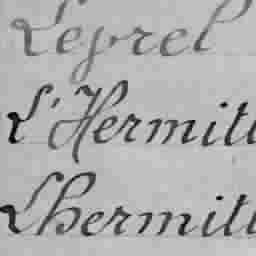 Leprel
L'Hermit
Lhermit